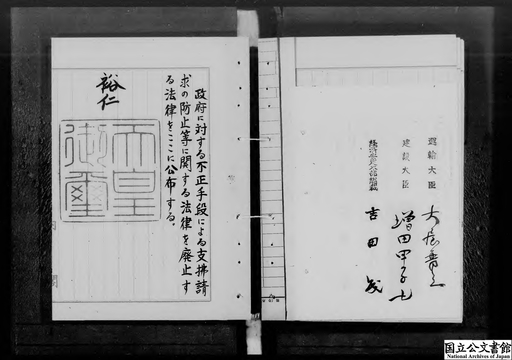 運輸大臣 大屋晋三
建設大臣 増田甲子七
吉田茂
政府に対する不正手段による支拂請
求の防止等に関する法律を廃止す
る法律をここに公布する。
裕仁
天皇
御璽
国立公文書館
National Archives of Japan